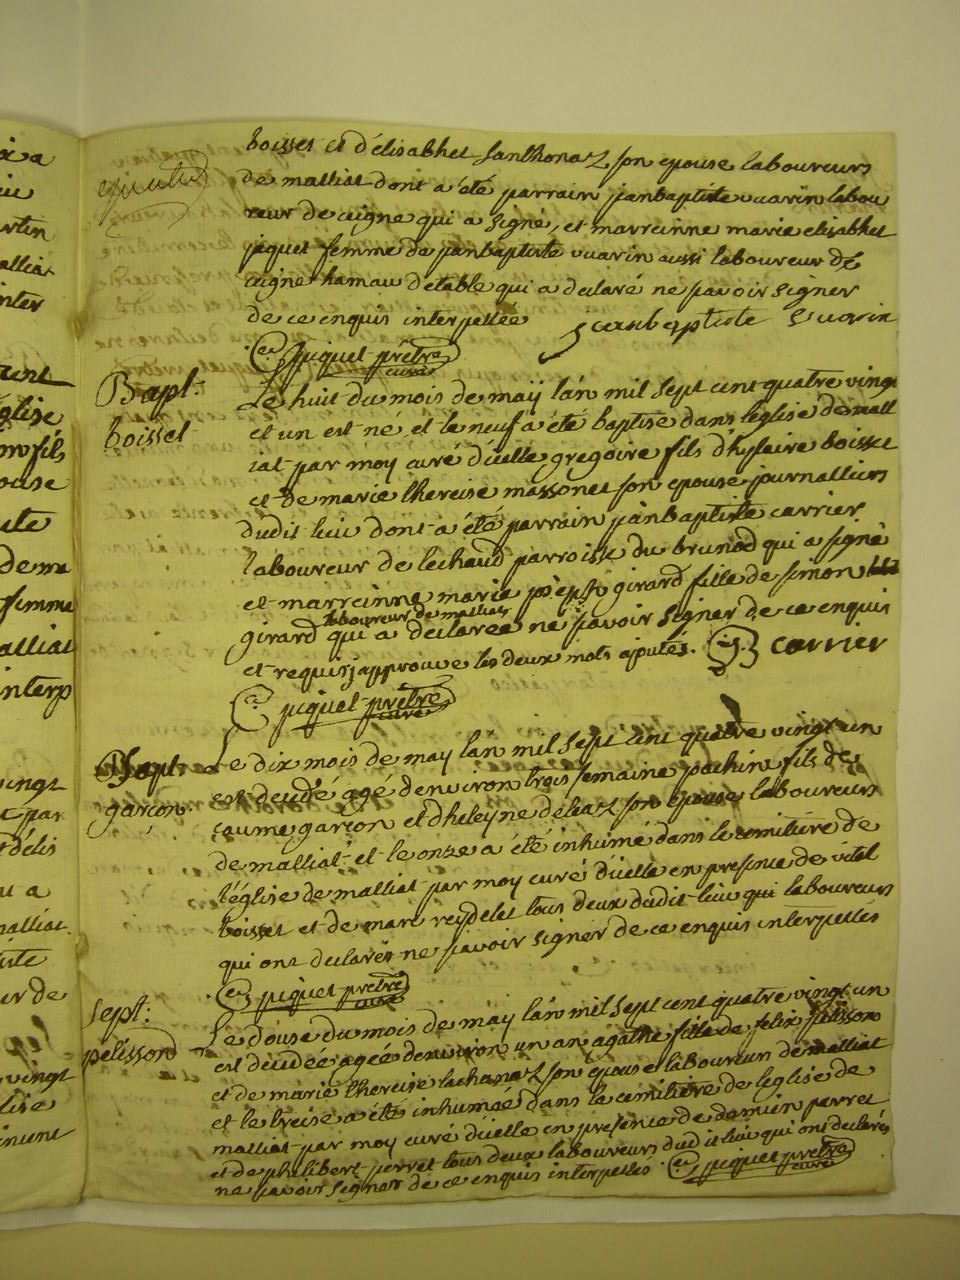 boisset et d'élisabhet santhonaz son epouse laboureurs
de malliat dont a été parrain janbaptiste vuarin labou
reur de cuigne qui a signé, et marreinne marie elisabhet
piquet femme de janbaptiste vuarin aussi laboureur de
cuigne hamau d'etable qui a déclaré ne savoir signer
de ce enquis interpellée jeanbaptiste Vuarin
piquet prêtre
curé
Bapt:
boisset
Le huit du mois de maÿ l'an mil sept cent quatre vingt
et un est né et le neuf a été baptisé dans l'eglise de mall
iat par moy curé d'icelle gregoire fils d'hylaire boisset
et de marie thereise massonet son epouse journalliers
dudit lieu dont a été parrain janbaptiste carrier
laboureur de lechaud parroisse du brunod qui a signé
et marreinne marie girard fille de simon
laboureur de malliat
girard qui a déclarée ne savoir signer de ce enquis
et requis j'approuve les deux mots ajoutés. carrier
piquet prêtre
curé
Sept:
garçon
Le dix mois de may l'an mil sept cent quatre vingt un
est décidé agé d'environ trois semaine joachin fils de
caume garçon et d'heleyne deleaz son epouse laboureurs
de malliat et le onze a été inhumé dans le cemitiére de
l'église de malliat par moy curé d'icelle en presence de vital
boisset et de marc reydelet tous deux dudit lieu qui laboureurs
qui ont declarés ne savoir signer de ce enquis interpellés
piquet prêtre
curé
Sept:
pelisson
Le douse du mois de maÿ l'an mil sept cent quatre vingt un
est décidée agée d'environ un an agathe fille de felix pelisson
et de marie thereise lachanaz son epouse laboureurs de malliat
et le treise a étés inhumée dans la cemitiére de l'eglise de
malliat par moy curé d'icelle en présence de damien perret
et de philibert perret tous deux laboureurs dudit lieu qui ont declarés
ne savoir signer de ce enquis interpellés piquet prêtre
curé